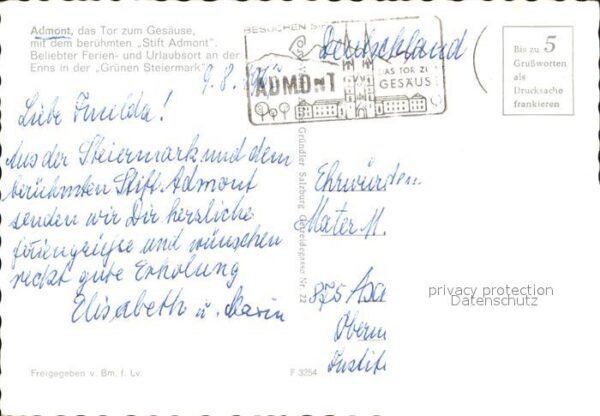 Admont, das Tor zum Gesäuse,
mit dem berühmten „Stift Admont".
Beliebter Ferien- und Urlaubsort an der
Enns in der „Grünen Steiermark"
BESUCHEN SIE
ADMONT
DAS TOR Z
GESÄUS
Deutschland
Bis zu 5
Grußworten
als
Drucksache
frankieren
9.8.
Liebe Imelda!
Aus der Steiermark und dem
berühmten Stift Admont
senden wir Dir herzliche
Feriengrüße und wünschen
recht gute Erholung
Elisabeth u.
Gründler Salzburg Getreidegasse Nr. 22
Ehrwürden
Mater M.
875 Asc
Obern
Institu
privacy protection
Datenschutz
Freigegeben v. Bm. f. Lv.
F 3254